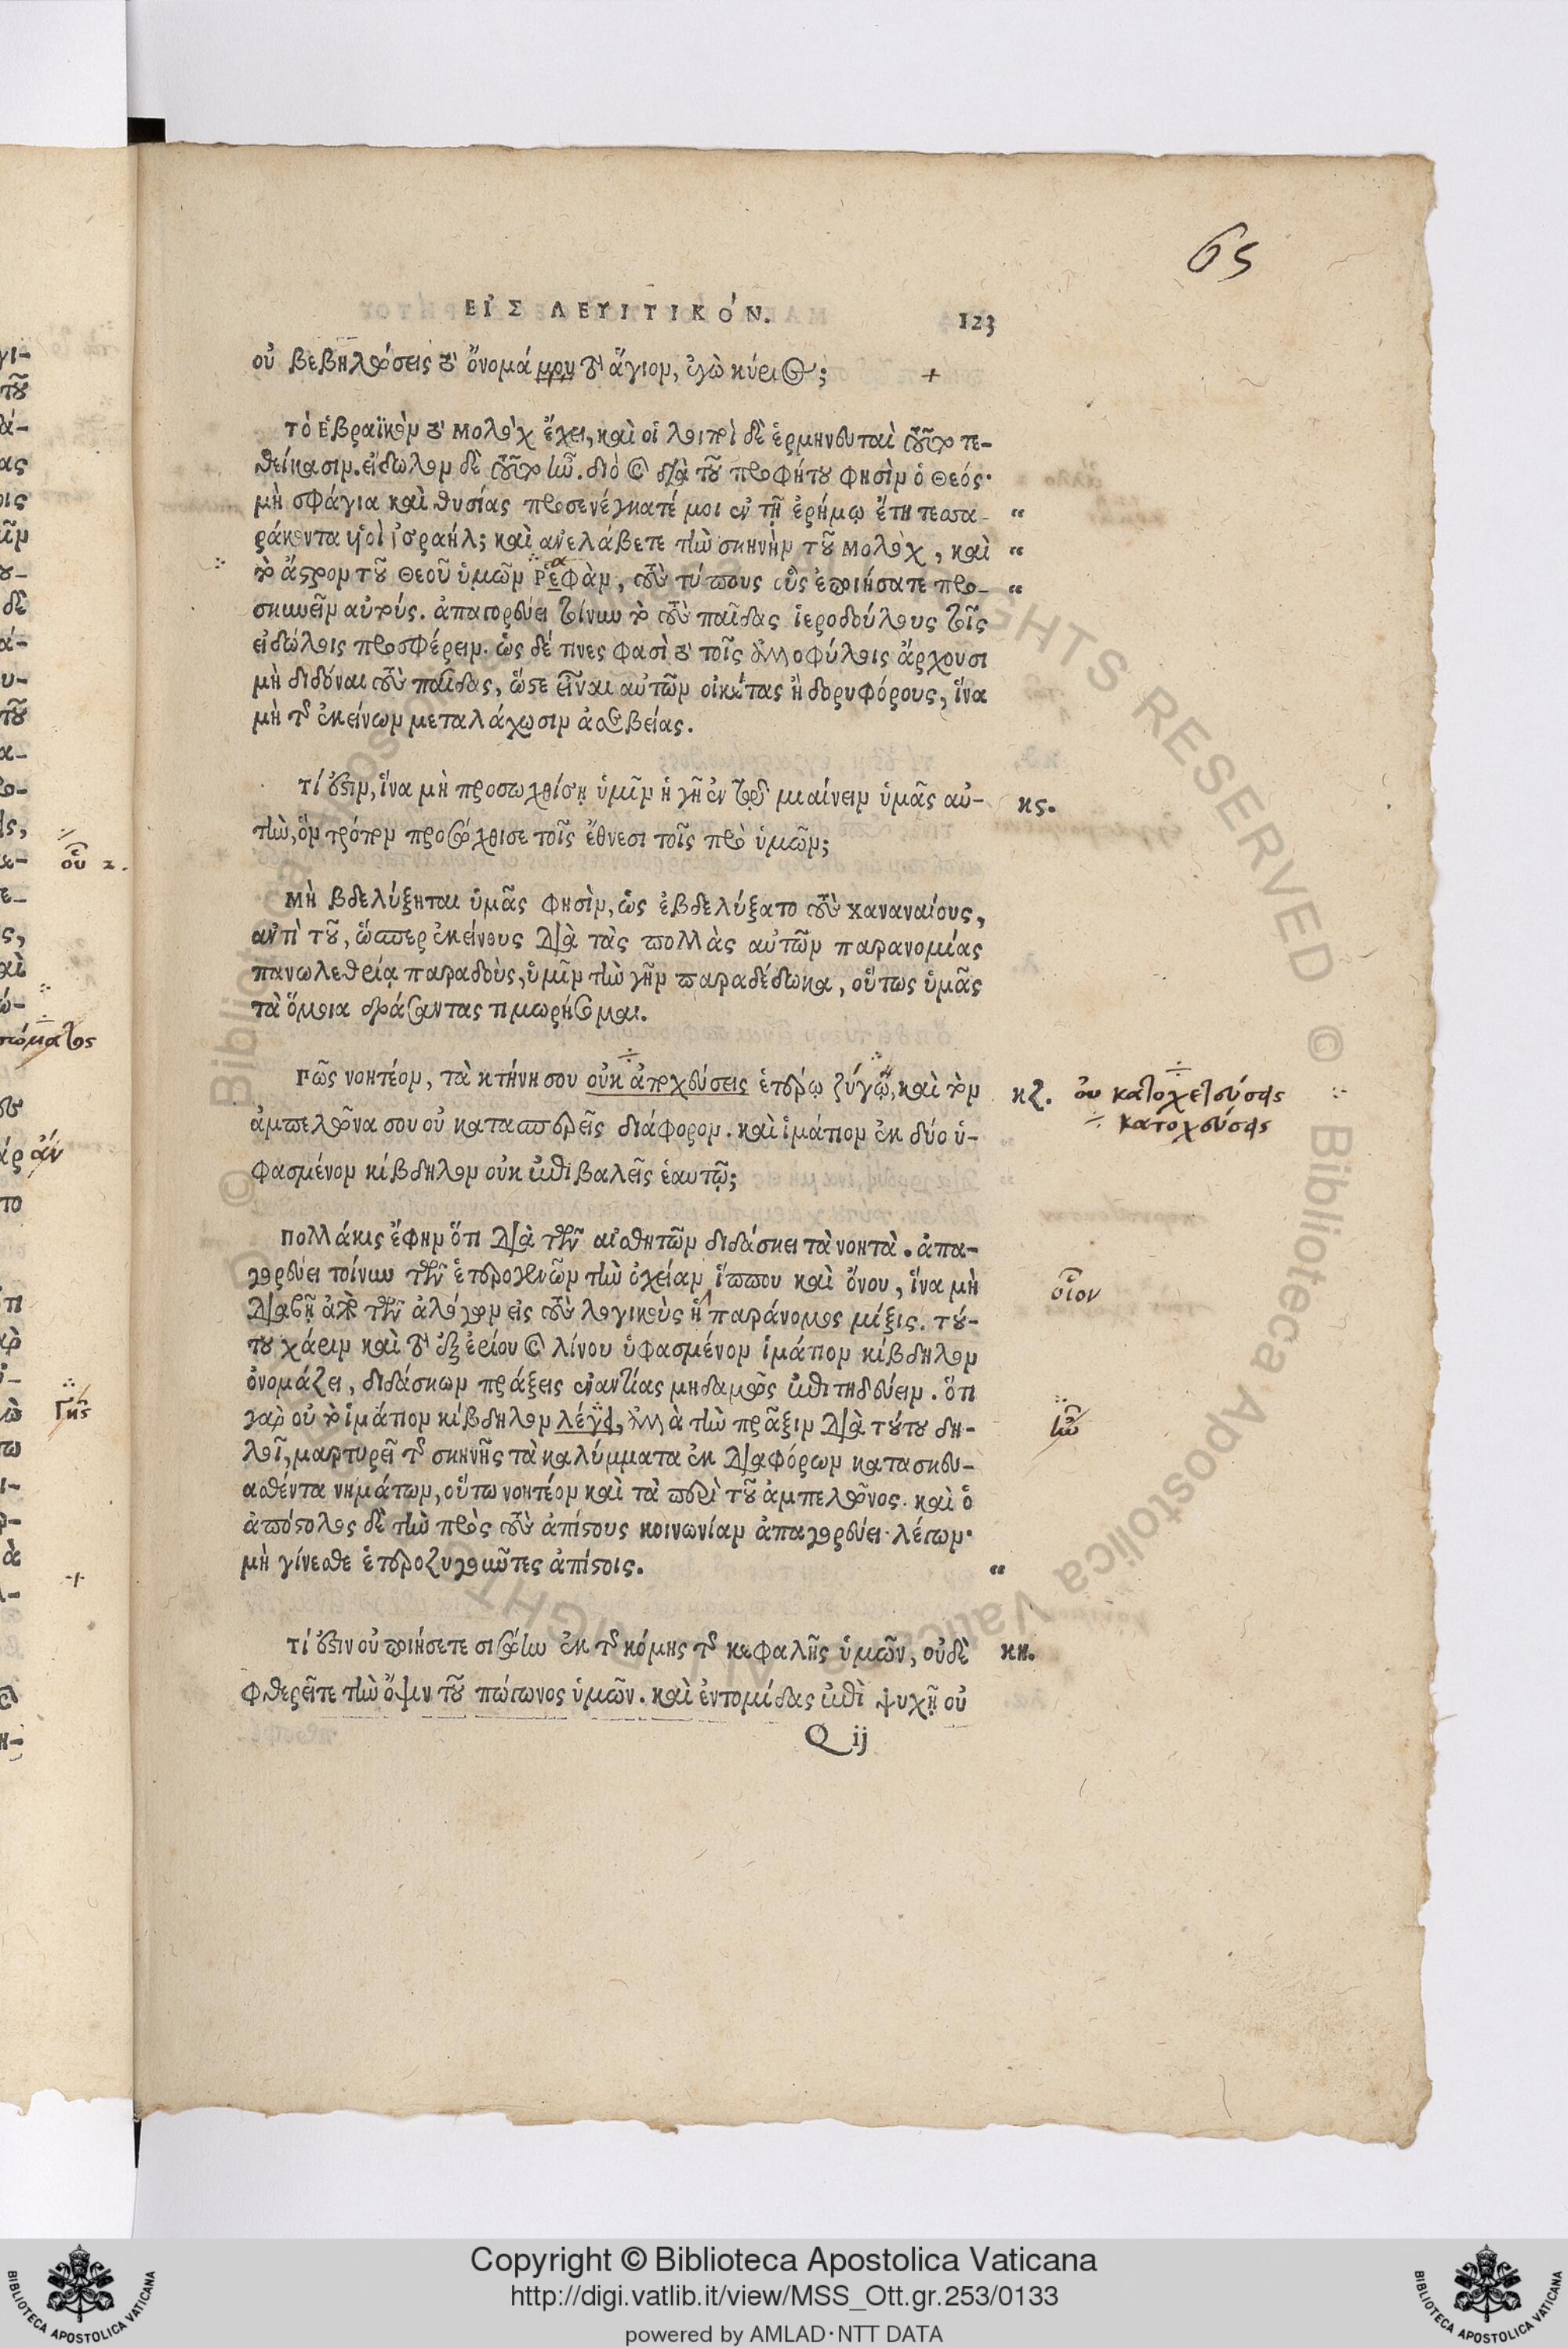 65
ΕἸΣ ΛΕΥΙΤΙΚΌΝ. 123
οὐ βεβηλώσεις τὸ ὄνομά μου τὸ ἅγιον, ἐγὼ κύριος; +
τὸ Ἑβραϊκὸν τὸ Μολὸχ ἔχει, καὶ οἱ λοιποὶ δὲ ἑρμηνευταὶ οὕτω τε-
θείκασιν. εἴδωλον δὲ οὕτω ἦν. διὸ καὶ διὰ τοῦ προφήτου φησὶν ὁ Θεός·
μὴ σφάγια καὶ θυσίας προσενέγκατέ μοι ἐν τῇ ἐρήμῳ ἔτη τεσσα- “
ράκοντα υἱοὶ ἰσραήλ; καὶ ἀνελάβετε τὴν σκηνὴν τοῦ Μολὸχ, καὶ “
τὸ ἄστρον τοῦ Θεοῦ ὑμῶν Ῥεφὰν, τοὺς τύπους οὓς ἐποιήσατε προ- “
σκυνεῖν αὐτούς. ἀπαγορεύει τοίνυν τὸ τοὺς παῖδας ἱεροδούλους τοῖς
εἰδώλοις προσφέρειν. ὡς δέ τινες φασὶ τὸ τοῖς ἀλλοφύλοις ἄρχουσι
μὴ διδόναι τοὺς παῖδας, ὥστε εἶναι αὐτῶν οἰκέτας ἢ δορυφόρους, ἵνα
μὴ τῆς ἐκείνων μεταλάχωσιν ἀσεβείας.
τί ἐστιν, ἵνα μὴ προσωχθίσῃ ὑμῖν ἡ γῆ ἐν τῷ μιαίνειν ὑμᾶς αὐ- κς.
τὴν, ὃν τρόπον προσώχθισε τοῖς ἔθνεσι τοῖς πρὸ ὑμῶν;
Μὴ βδελύξηται ὑμᾶς φησὶν, ὡς ἐβδελύξατο τοὺς Χαναναίους,
ἀντὶ τοῦ, ὥσπερ ἐκείνους διὰ τὰς πολλὰς αὐτῶν παρανομίας
πανωλεθρίᾳ παραδοὺς, ὑμῖν τὴν γῆν παραδέδωκα, οὕτως ὑμᾶς
τὰ ὅμοια δράσαντας τιμωρήσομαι.
Πῶς νοητέον, τὰ κτήνη σου οὐκ ἀποχεύσεις ἑτέρῳ ζύγῳ, καὶ τὸν κζ. οὐ κατοχετεύσεις
κατοχεύσεις
ἀμπελῶνα σου οὐ κατασπερεῖς διάφορον. καὶ ἱμάτιον ἐκ δύο ὑ-
φασμένον κίβδηλον οὐκ ἐπιβαλεῖς ἑαυτῷ;
Πολλάκις ἔφην ὅτι διὰ τῶν αἰσθητῶν διδάσκει τὰ νοητὰ. ἀπα-
γορεύει τοίνυν τῶν ἑτερογενῶν τὴν ὀχείαν ἵππου καὶ ὄνου, ἵνα μὴ οἷον
διαβῇ ἀπὸ τῶν ἀλόγων εἰς τοὺς λογικοὺς ἡ παράνομος μίξις. τού-
του χάριν καὶ τὸ ἐξ ἐρίου καὶ λίνου ὑφασμένον ἱμάτιον κίβδηλον
ὀνομάζει, διδάσκων πράξεις ἐναντίας μηδαμῶς ἐπιτηδεύειν. ὅτι
γὰρ οὐ τὸ ἱμάτιον κίβδηλον λέγει, ἀλλὰ τὴν πρᾶξιν διὰ τούτου δη- ἦν
λοῖ, μαρτυρεῖ τῆς σκηνῆς τὰ καλύμματα ἐκ διαφόρων κατασκευ-
ασθέντα νημάτων, οὕτω νοητέον καὶ τὰ περὶ τοῦ ἀμπελῶνος. καὶ ὁ
ἀπόστολος δὲ τὴν πρὸς τοὺς ἀπίστους κοινωνίαν ἀπαγορεύει λέγων·
μὴ γίνεσθε ἑτεροζυγοῦντες ἀπίστοις. “
τί ἐστιν οὐ ποιήσετε σισόην ἐκ τῆς κόμης τῆς κεφαλῆς ὑμῶν, οὐδὲ κη.
φθερεῖτε τὴν ὄψιν τοῦ πώγωνος ὑμῶν. καὶ ἐντομίδας ἐπὶ ψυχῇ οὐ
Q ij
οὗ
Γῆς
ἄν
Copyright © Biblioteca Apostolica Vaticana
http://digi.vatlib.it/view/MSS_Ott.gr.253/0133
powered by AMLAD·NTT DATA
BIBLIOTECA APOSTOLICA VATICANA
BIBLIOTECA APOSTOLICA VATICANA